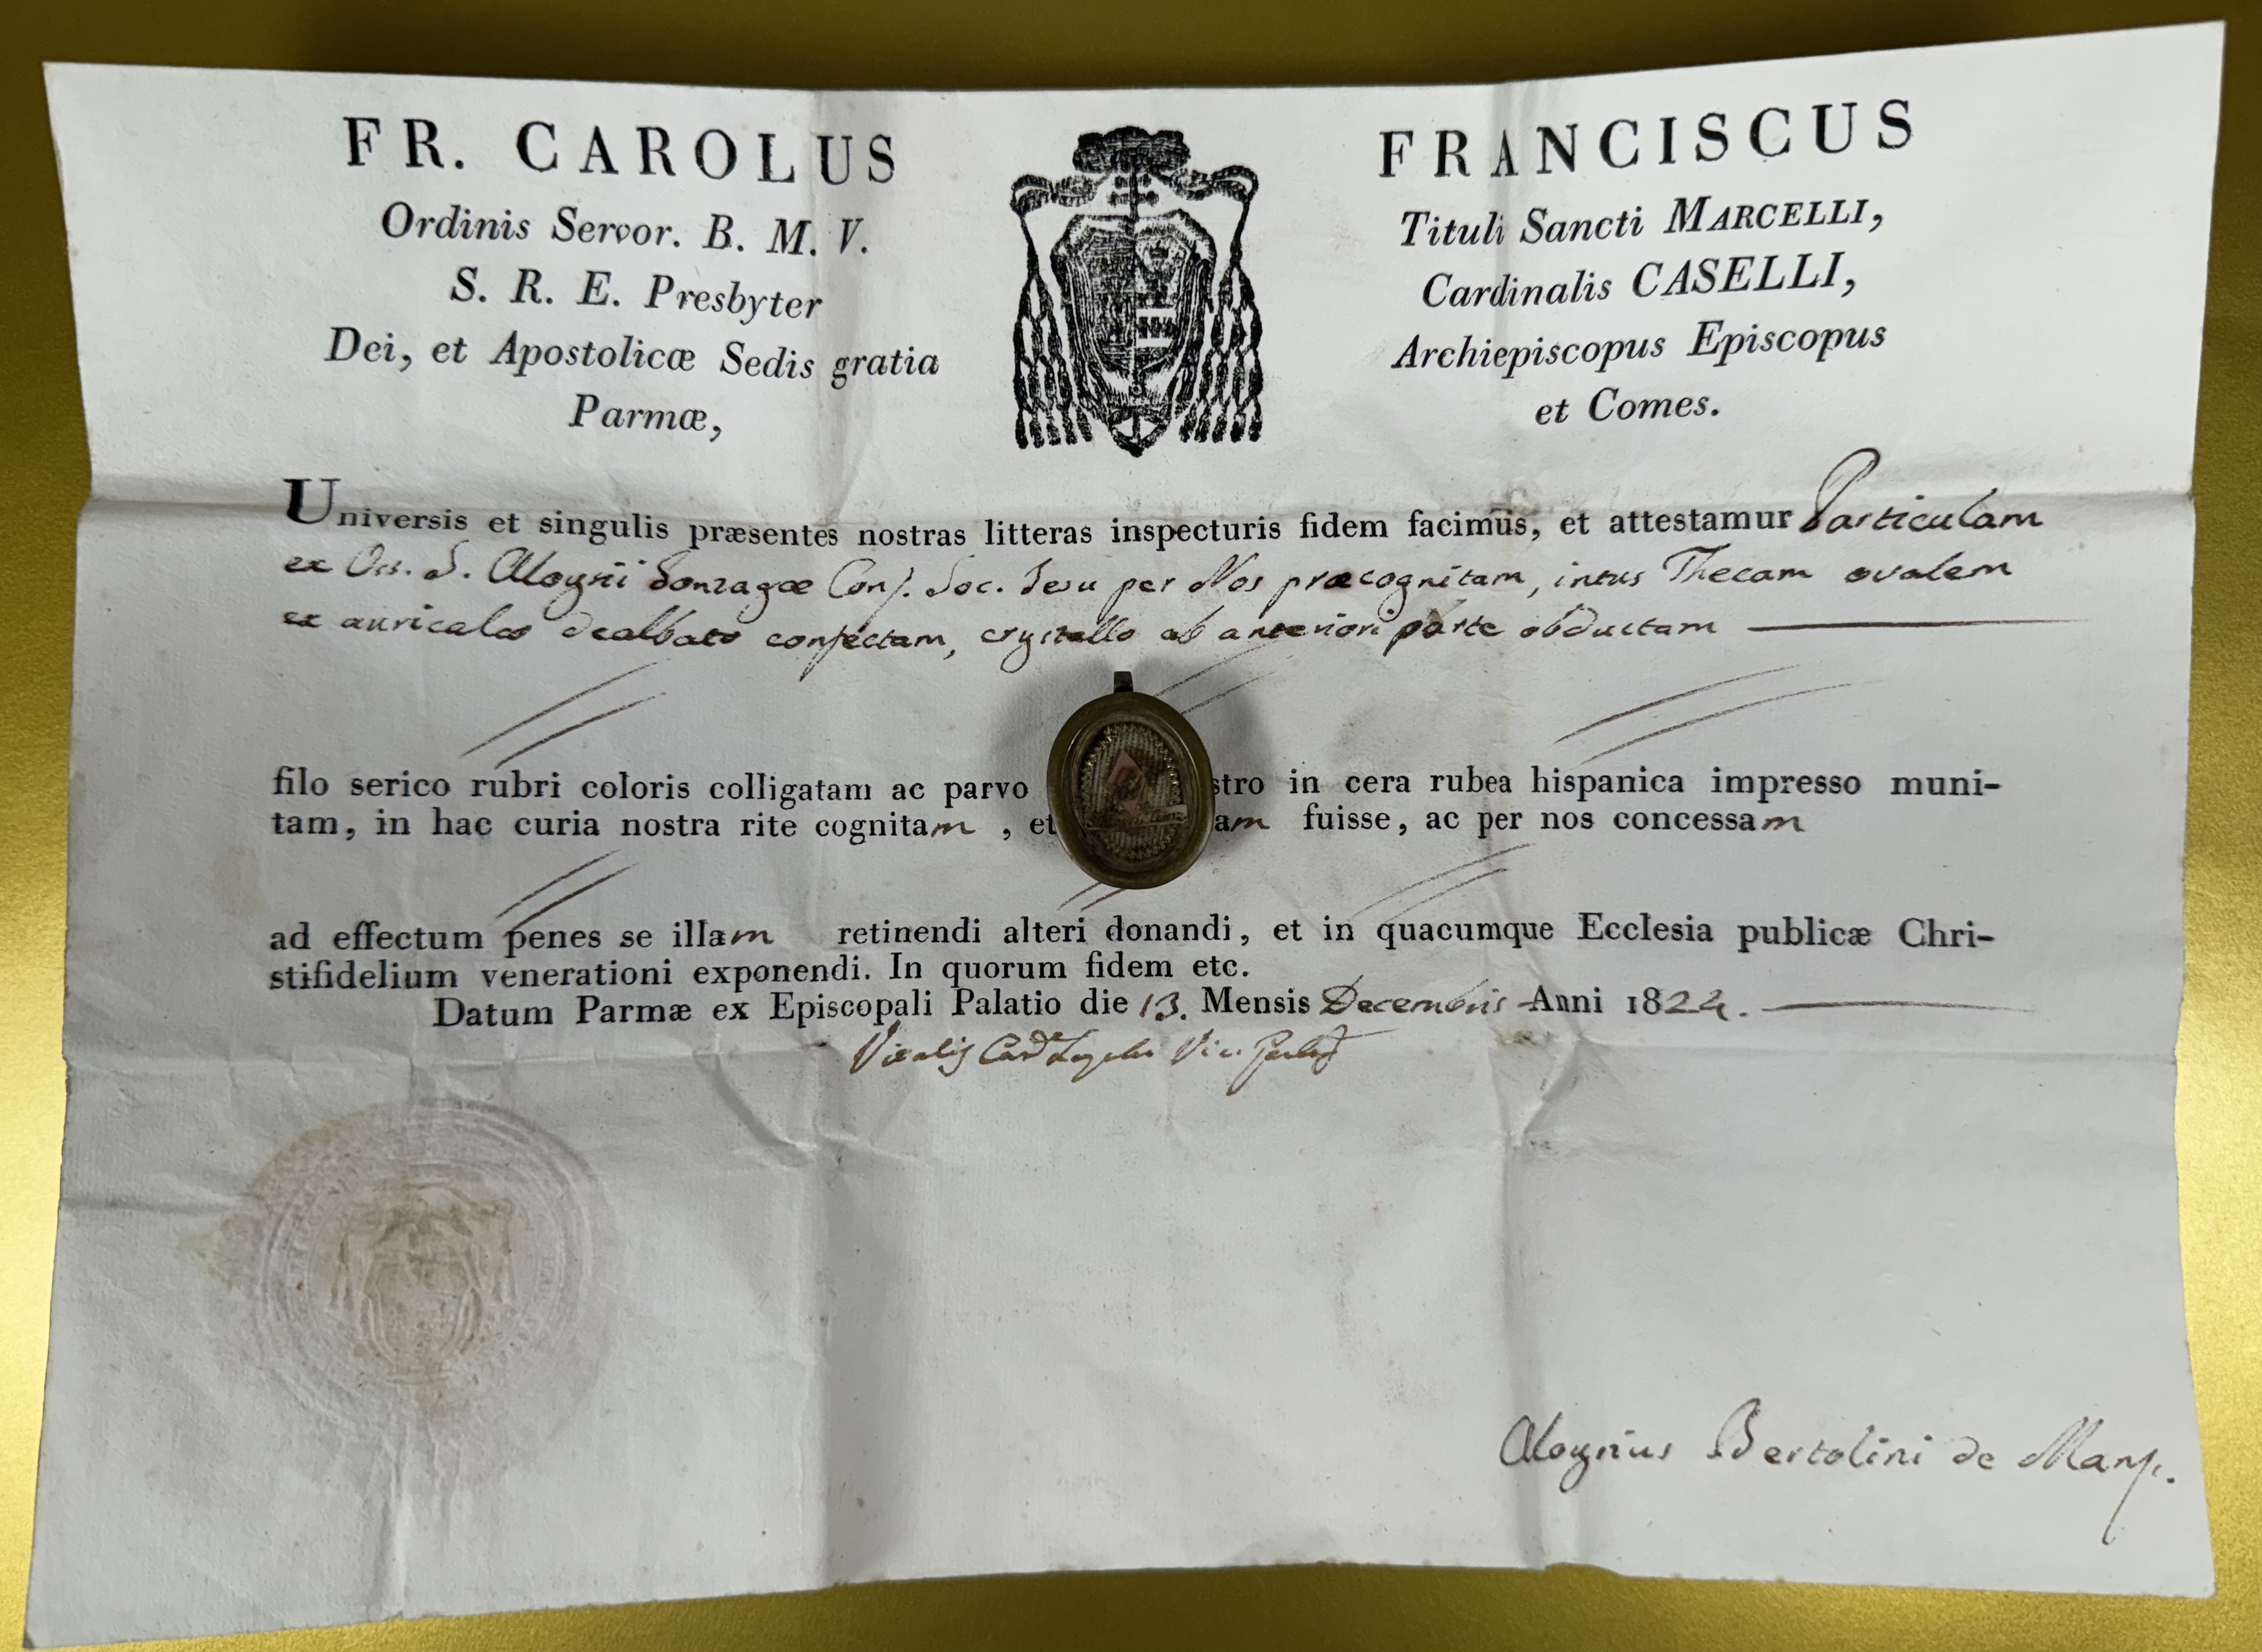 FR. CAROLUS FRANCISCUS
Ordinis Servor. B. M. V. Tituli Sancti MARCELLI,
S. R. E. Presbyter Cardinalis CASELLI,
Dei, et Apostolicæ Sedis gratia Archiepiscopus Episcopus
Parmæ, et Comes.
Universis et singulis præsentes nostras litteras inspecturis fidem facimus, et attestamur Particulam
ex Oss. S. Aloysii Gonzagæ Conf. Soc. Jesu per Nos præcognitam, intus Thecam ovalem
ex auricalco dealbato confectam, crystallo ab anteriori parte obductam
filo serico rubri coloris colligatam ac parvo stro in cera rubea hispanica impresso muni-
tam, in hac curia nostra rite cognitam , et am fuisse, ac per nos concessam
ad effectum penes se illam retinendi alteri donandi, et in quacumque Ecclesia publicæ Chri-
stifidelium venerationi exponendi. In quorum fidem etc.
Datum Parmæ ex Episcopali Palatio die 13. Mensis Decembris Anni 1824.
Vitalis Vic.
Aloysius Bertolini de